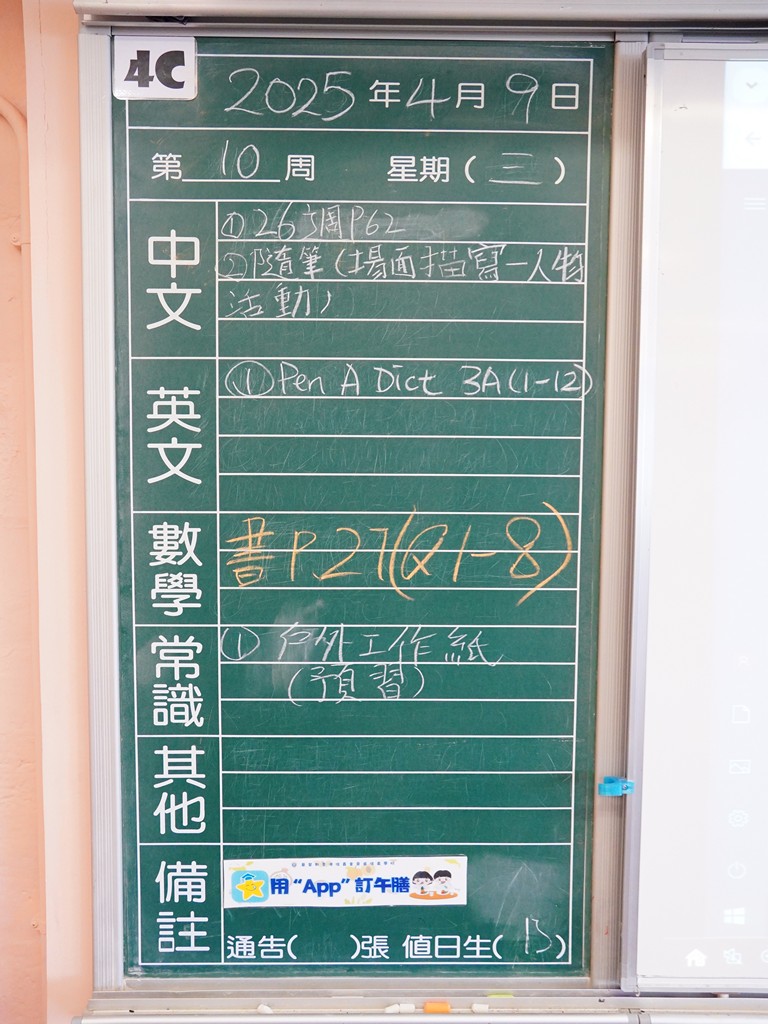 4C
2025年4月9日
第 10 周 星期(三)
中文
① 26調P62
②隨筆(場面描寫—人物
活動)
英文
① Pen A Dict 3A(1-12)
數學
書P.27(Q1-8)
常識
① 戶外工作紙
(預習)
其他
備註
用“App”訂午膳
通告( )張 值日生( 13 )